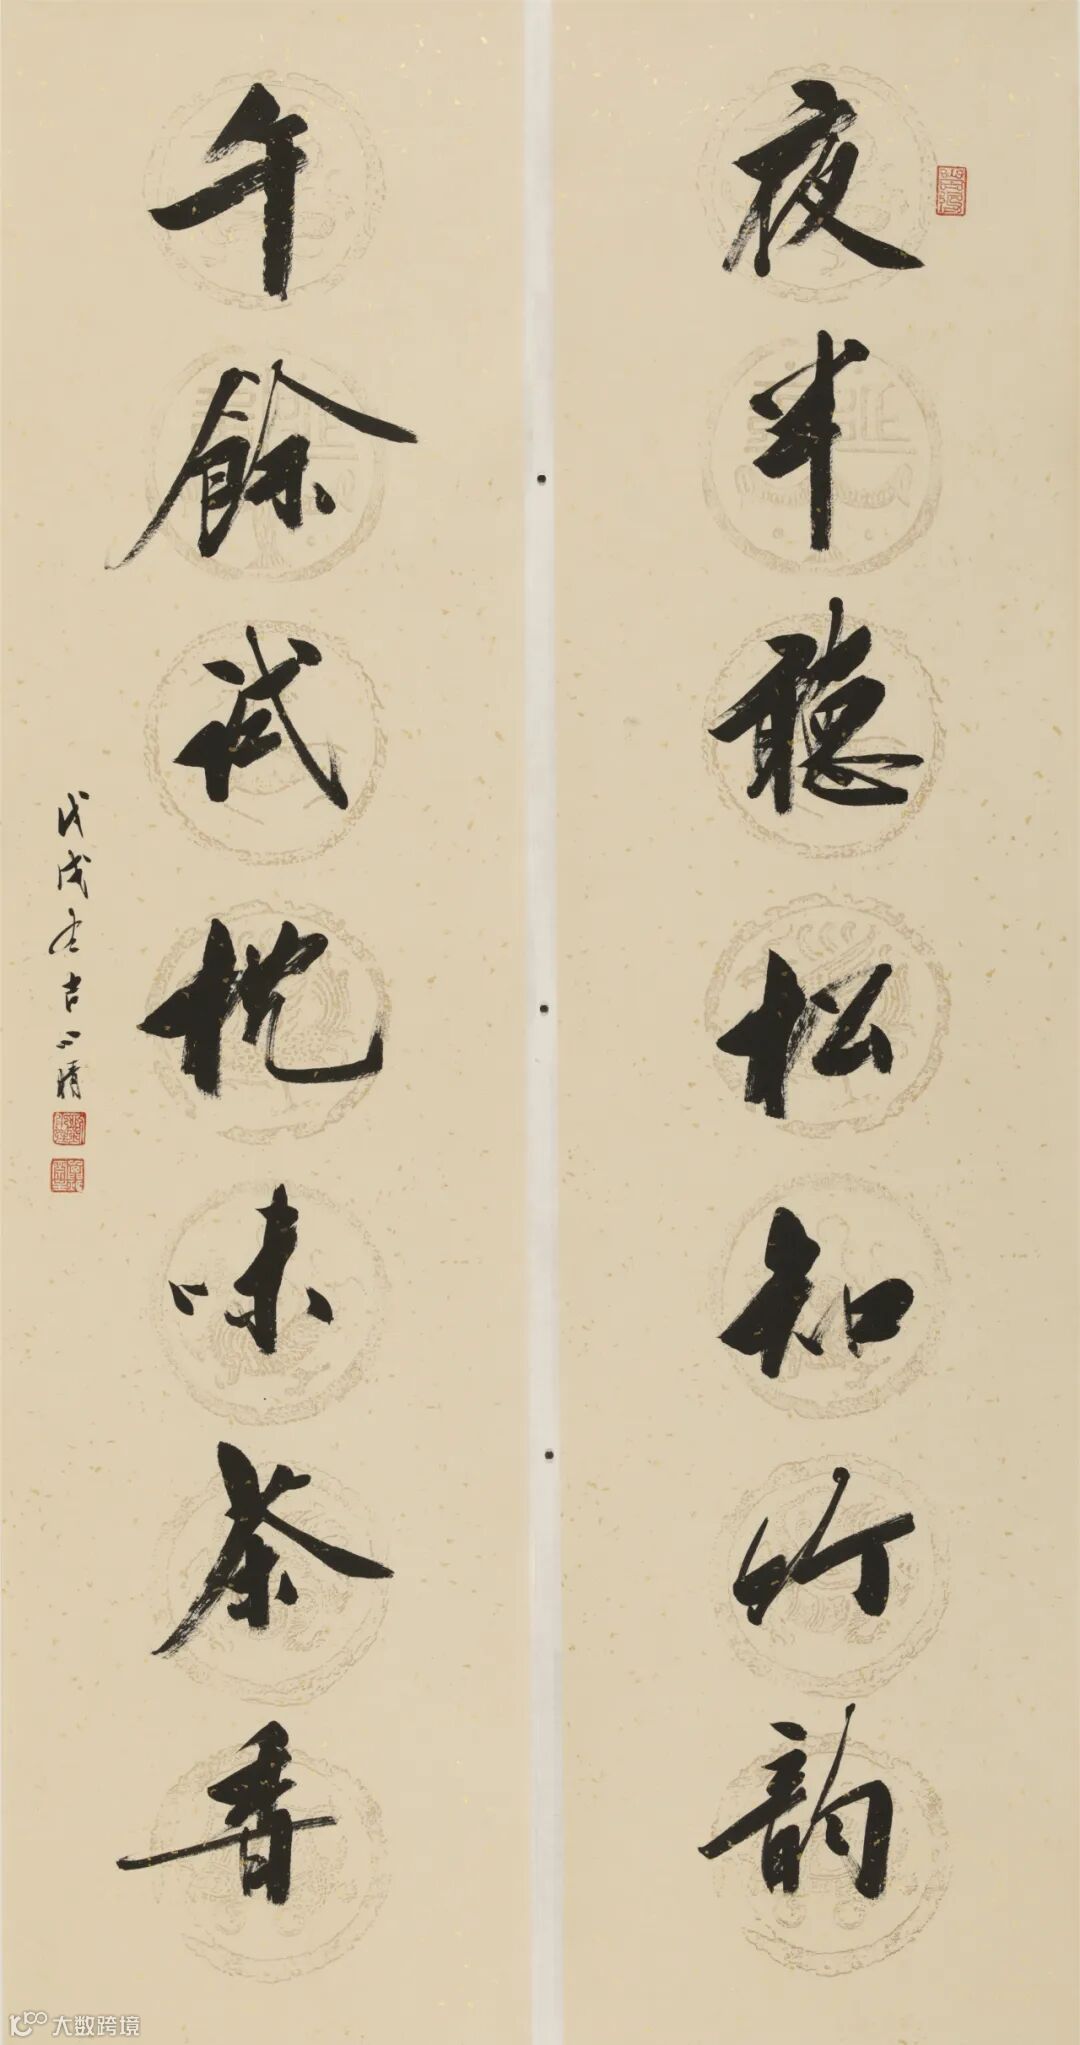 夜半聽松知竹韵
午餘試枕味茶香
戊戌吉晴
大数跨境